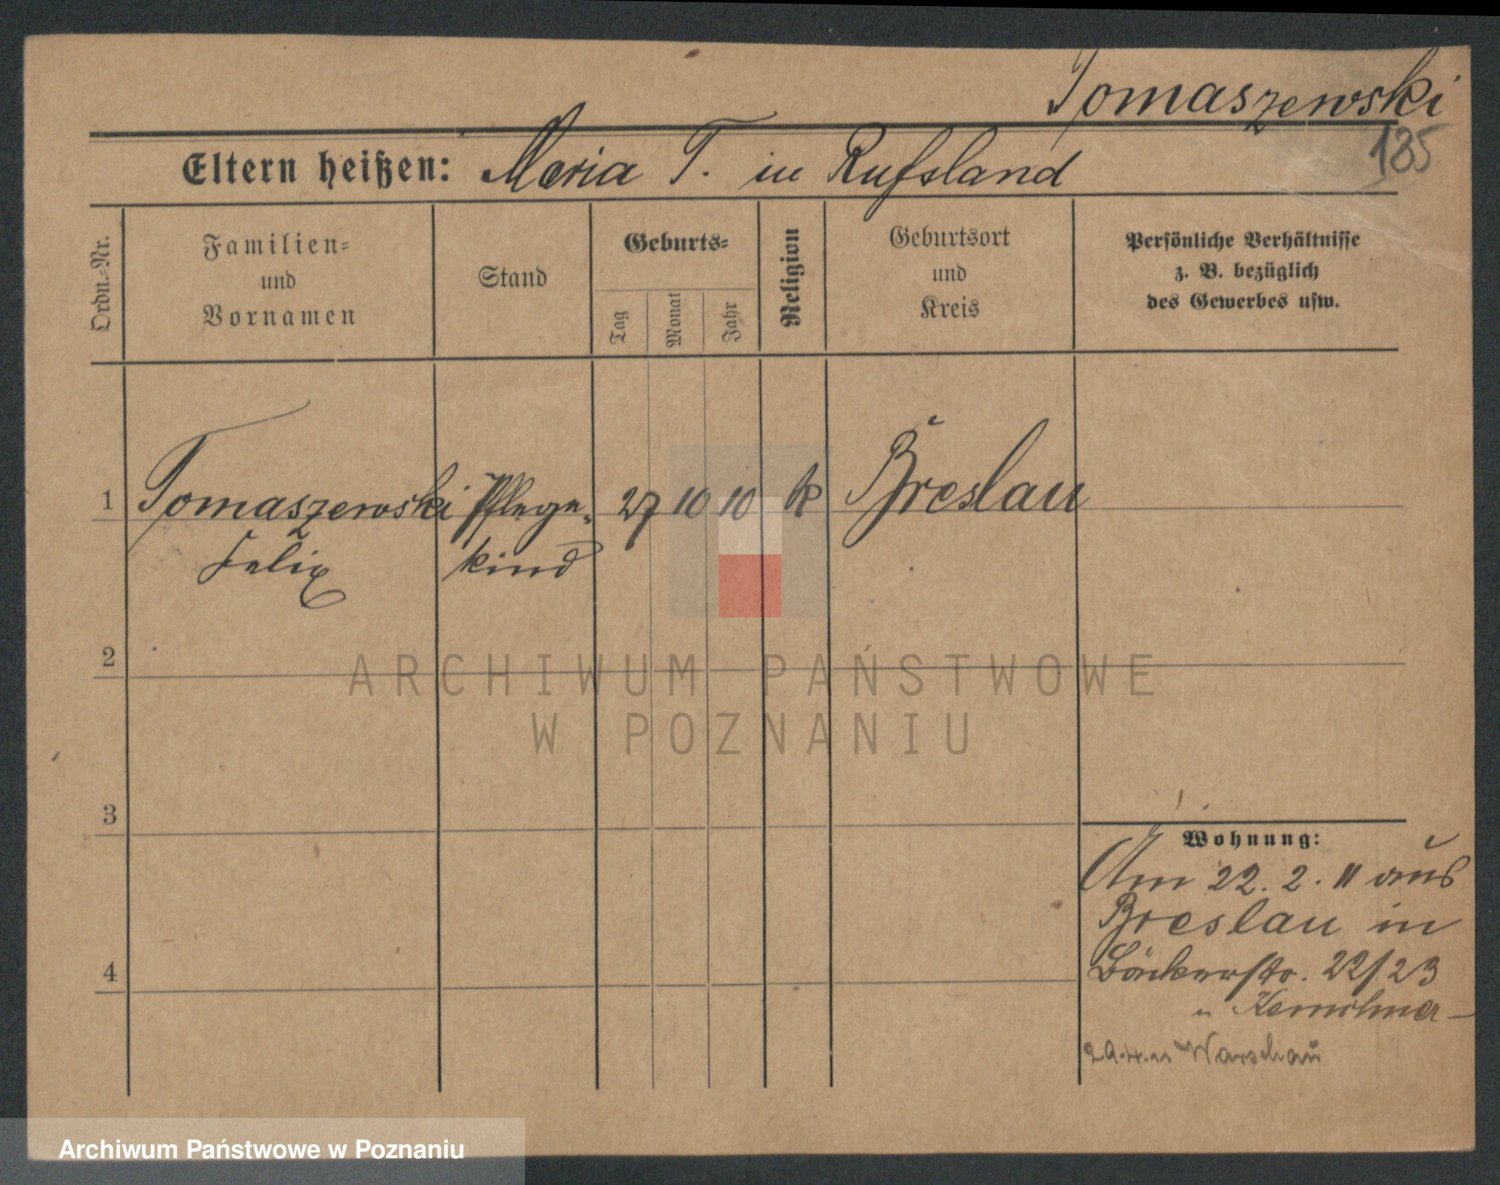 Tomaszewski
185
Eltern heißen: Maria T. in Rußland
Ordn.-Nr.
Familien-
und
Vornamen
Stand
Geburts-
Tag
Monat
Jahr
Religion
Geburtsort
und
Kreis
Persönliche Verhältnisse
z. B. bezüglich
des Gewerbes usw.
1 Tomaszewski Pflege- 27 10 10 k Breslau
Felix kind
2
3
4
Wohnung:
Am 22. 2. 11 aus
Breslau in
Bäckerstr. 22/23
29.4.11 Warschau
ARCHIWUM PAŃSTWOWE
W POZNANIU
Archiwum Państwowe w Poznaniu